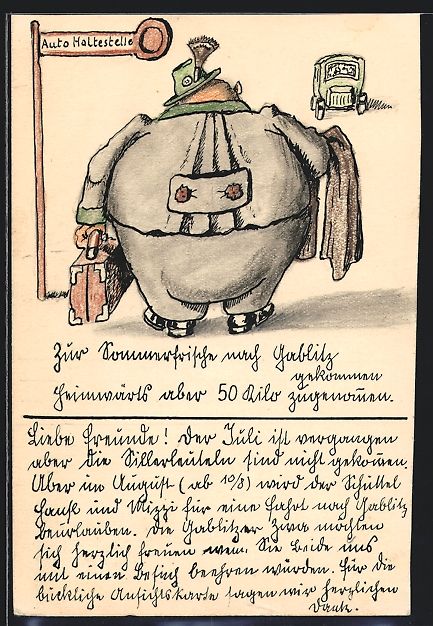 Auto Haltestelle
Zur Sommerfrische nach Gablitz
gekommen
heimwärts aber 50 Kilo zugenom̄en.
Liebe Freunde! Der Juli ist vergangen
aber die Sillerleuteln sind nicht gekom̄en.
Aber im August (ab 10/8) wird der Schüttel
Hansl und Mizzi für eine Fahrt nach Gablitz
beurlauben. Die Gablitzer Zwa möchten
sich herzlich freuen wenn Sie beide uns
mit einen Besuch beehren würden. Für die
Ansichtskarte sagen wir herzlichen
Dank.